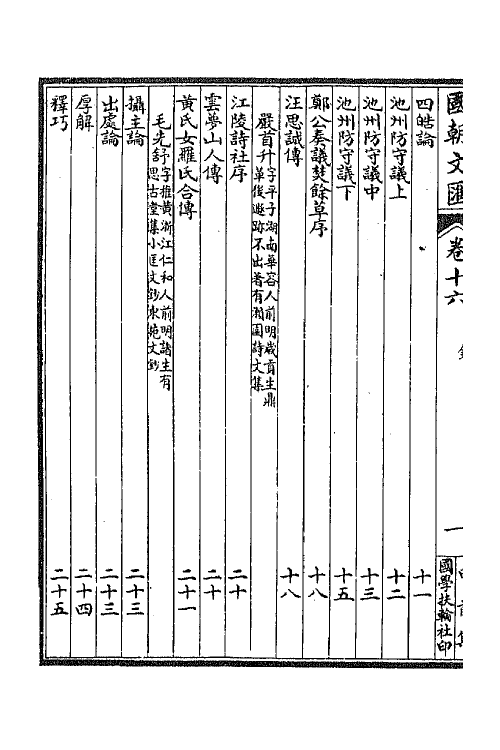 國朝文匯 卷十六 一 國學扶輪社印
四皓論 十一
池州防守議上 十二
池州防守議中 十三
池州防守議下 十五
鄭公奏議焚餘草序 十八
汪思誠傳 十八
嚴首升字平子湖南華容人前明歲貢生鼎
革後遯跡不出著有瀨園詩文集
江陵詩社序 二十
雲夢山人傳 二十
黃氏女羅氏合傳 二十一
毛先舒字稚黃浙江仁和人前明諸生有
思古堂集小匡文鈔東苑文鈔
攝主論 二十三
出處論 二十三
厚解 二十四
釋巧 二十五